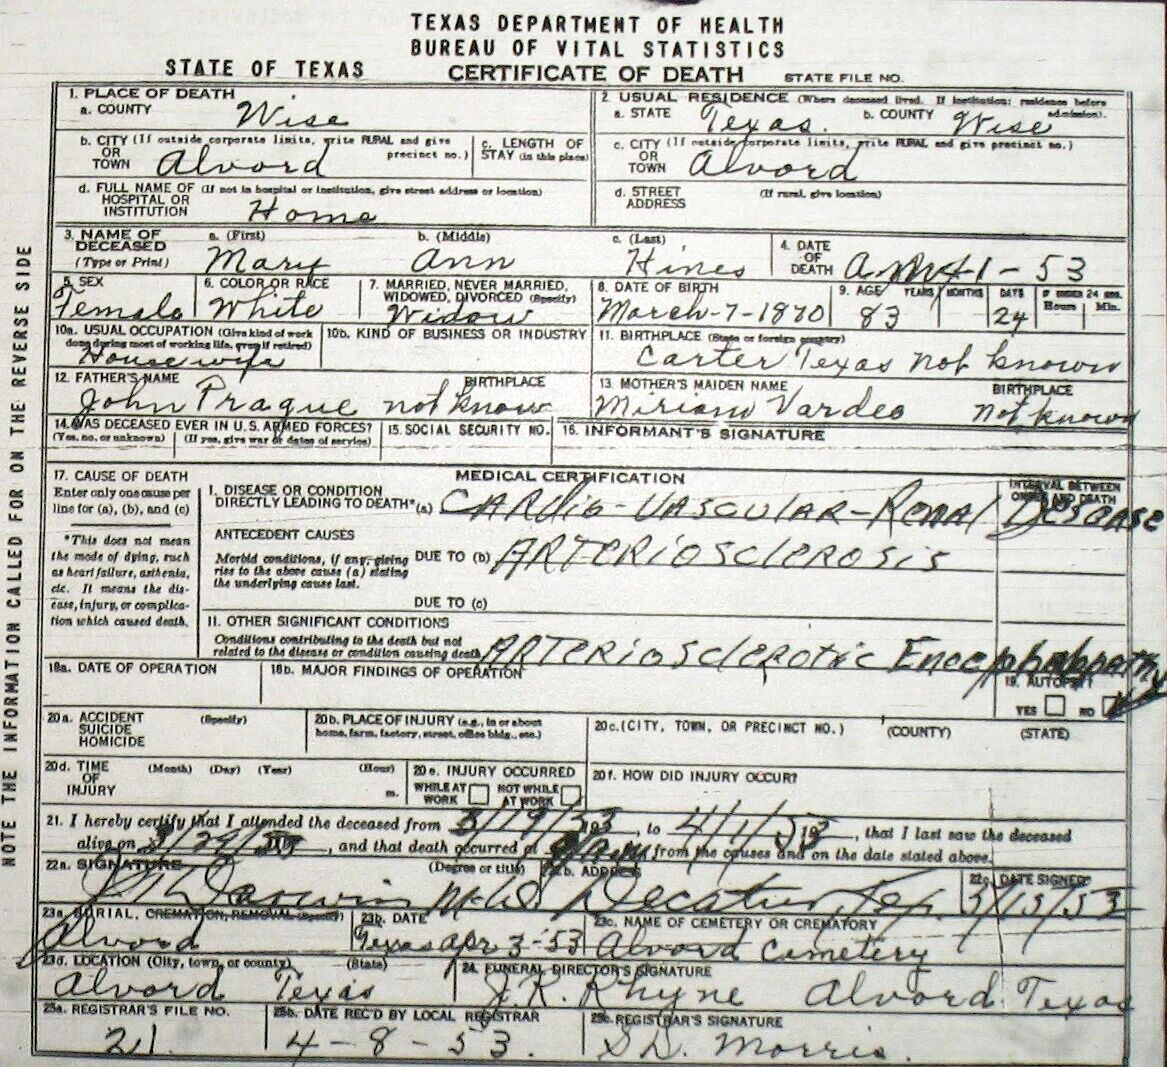 TEXAS DEPARTMENT OF HEALTH
BUREAU OF VITAL STATISTICS
STATE OF TEXAS CERTIFICATE OF DEATH STATE FILE NO.
NOTE THE INFORMATION CALLED FOR ON THE REVERSE SIDE
1. PLACE OF DEATH
a. COUNTY Wise
2. USUAL RESIDENCE (Where deceased lived. If institution: residence before admission).
a. STATE Texas. b. COUNTY Wise
b. CITY (If outside corporate limits, write RURAL and give precinct no.)
OR
TOWN Alvord
c. LENGTH OF
STAY (in this place)
c. CITY (If outside corporate limits, write RURAL and give precinct no.)
OR
TOWN Alvord
d. FULL NAME OF (If not in hospital or institution, give street address or location)
HOSPITAL OR
INSTITUTION Home
d. STREET (If rural, give location)
ADDRESS
3. NAME OF a. (First) b. (Middle) c. (Last)
DECEASED
(Type or Print) Mary Ann Hines
4. DATE
OF
DEATH 1-53
5. SEX
Female
6. COLOR OR RACE
White
7. MARRIED, NEVER MARRIED,
WIDOWED, DIVORCED (Specify)
Widow
8. DATE OF BIRTH
March-7-1870
9. AGE YEARS MONTHS DAYS IF UNDER 24 HRS.
Hours Min.
83 24
10a. USUAL OCCUPATION (Give kind of work
done during most of working life, even if retired)
Housewife
10b. KIND OF BUSINESS OR INDUSTRY
11. BIRTHPLACE (State or foreign country)
Carter Texas not known
12. FATHER'S NAME BIRTHPLACE
John Prague not know
13. MOTHER'S MAIDEN NAME BIRTHPLACE
Miriam Vardeo not known
14. WAS DECEASED EVER IN U.S. ARMED FORCES?
(Yes, no, or unknown) (If yes, give war or dates of service)
15. SOCIAL SECURITY NO.
16. INFORMANT'S SIGNATURE
MEDICAL CERTIFICATION
17. CAUSE OF DEATH
Enter only one cause per
line for (a), (b), and (c)
*This does not mean
the mode of dying, such
as heart failure, asthenia,
etc. It means the dis-
ease, injury, or complica-
tion which caused death.
INTERVAL BETWEEN
ONSET AND DEATH
I. DISEASE OR CONDITION
DIRECTLY LEADING TO DEATH*(a) CARdio-VASCULAR-RENAl DESEASE
ANTECEDENT CAUSES
Morbid conditions, if any, giving
rise to the above cause (a) stating
the underlying cause last.
DUE TO (b) ARTERIOSCLEROSIS
DUE TO (c)
II. OTHER SIGNIFICANT CONDITIONS
Conditions contributing to the death but not
related to the disease or condition causing death ARTERIOSCLEROTIC Encephalopathy
18a. DATE OF OPERATION
18b. MAJOR FINDINGS OF OPERATION
19. AUTOPSY
YES NO
20a. ACCIDENT (Specify)
SUICIDE
HOMICIDE
20b. PLACE OF INJURY (e.g., in or about
home, farm, factory, street, office bldg., etc.)
20c. (CITY, TOWN, OR PRECINCT NO.) (COUNTY) (STATE)
20d. TIME (Month) (Day) (Year) (Hour)
OF
INJURY m.
20e. INJURY OCCURRED
WHILE AT WORK NOT WHILE AT WORK
20f. HOW DID INJURY OCCUR?
21. I hereby certify that I attended the deceased from 3/19/53, to 4/1/53, that I last saw the deceased
alive on 3/29/53, and that death occurred at from the causes and on the date stated above.
22a. SIGNATURE (Degree or title) 22b. ADDRESS 22c. DATE SIGNED
Darwin M.D. Decatur, Tex.
23a. BURIAL, CREMATION, REMOVAL (Specify)
Alvord
23b. DATE
Texas Apr 3-53
23c. NAME OF CEMETERY OR CREMATORY
Alvord Cemetery
23d. LOCATION (City, town, or county) (State)
Alvord Texas
24. FUNERAL DIRECTOR'S SIGNATURE
J.R. Rhyne Alvord Texas
25a. REGISTRAR'S FILE NO.
21.
25b. DATE REC'D BY LOCAL REGISTRAR
4-8-53.
25c. REGISTRAR'S SIGNATURE
S.D. Morris.